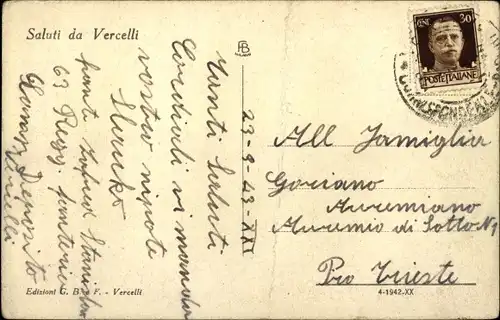 Saluti da Vercelli
FB
CENT. 30
POSTE ITALIANE
Tanti Saluti
Cordiali vi manda
vostro nipote
Slauko
fante
63 Regg. fanteria
Deposito
Vercelli
23-9-43-XXI
All Famiglia
Goriano
Auremiano
Auremio di Sotto N 1
Pro Trieste
Edizioni G. B. F. - Vercelli
4-1942-XX